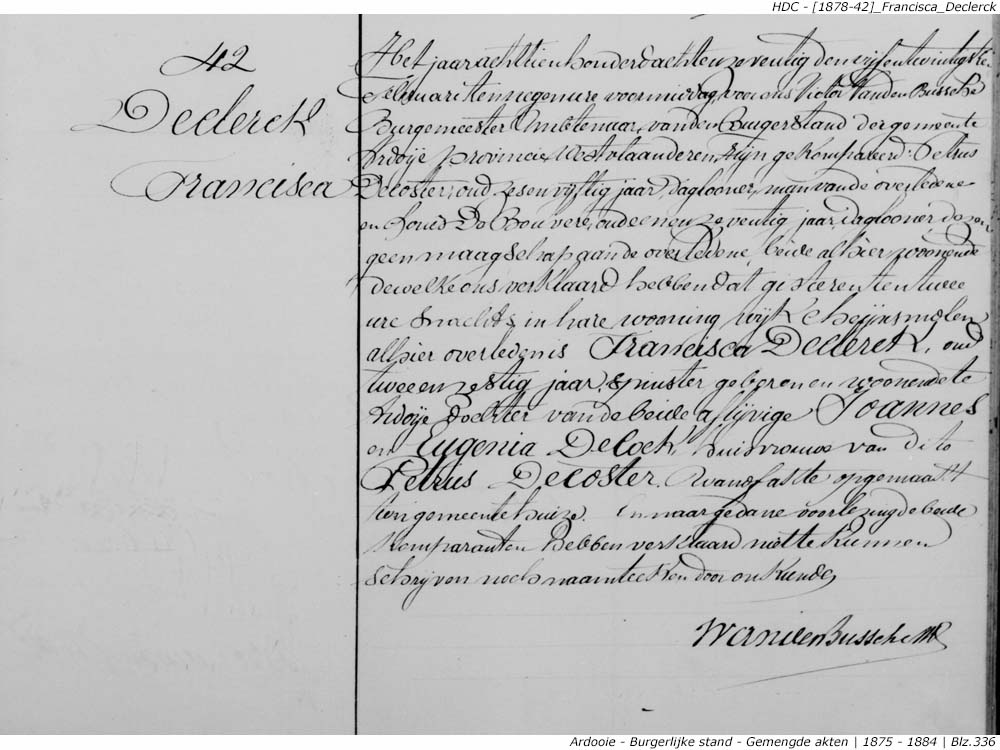 HDC - [1878-42]_Francisca_Declerck
42
Declerck
Francisca
Het jaar achttien honderd achtenzeventig den vijfentwintigste
Februari ten negen ure voormiddag, voor ons Victor Vanden Bussche
Burgemeester Ambtenaar van den Burgerstand der gemeente
Ardoije provincie Westvlaanderen, zijn gekompareerd: Petrus
Decoster, oud zesenvijftig jaar, daglooner, man van de overledene
en Louis De Bouvere, oud eenenzeventig jaar, daglooner, dezen
geen maagschap aan de overledene, beide alhier woonende
dewelke ons verklaard hebben dat gisteren ten twee
ure snachts, in hare wooning wijk
alhier overleden is Francisca Declerck, oud
tweeenzestig jaar, spinster geboren en woonende te
Ardoije dochter van de beide aflijvige Joannes
en Eugenia Delock, huisvrouwe van dito
Petrus Decoster. Waarvan akte opgemaakt
ten gemeentehuize. En naar gedane voorlezing de beide
Komparanten hebben verklaard niet te kunnen
schrijven noch naamteeken door onkunde
VandenBussche
Ardooie - Burgerlijke stand - Gemengde akten | 1875 - 1884 | Blz.336